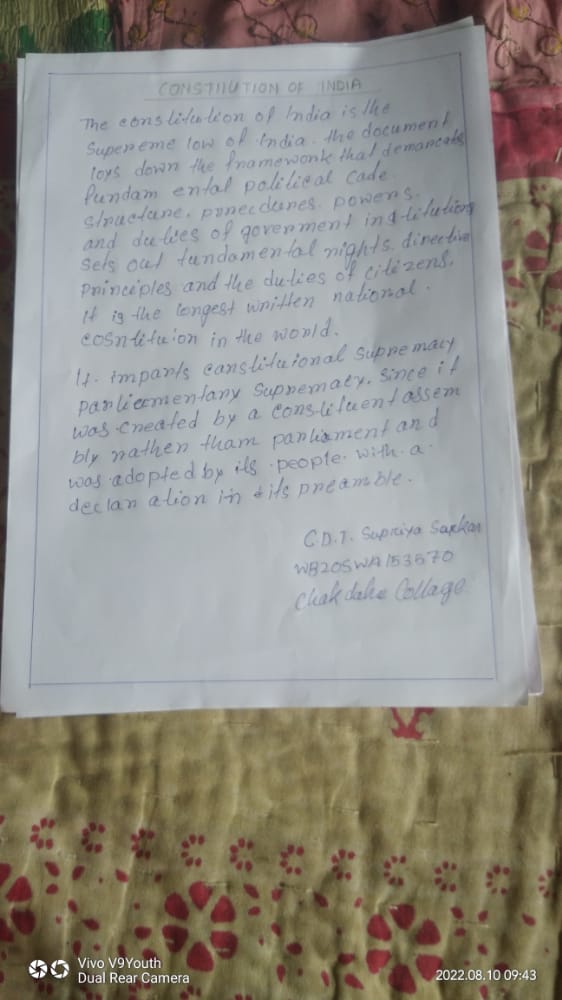 CONSTITUTION OF INDIA
The constitution of India is the
Supereme low of India. the document
loys down the framework that demarcates
fundam ental political cade.
structure. procedures. powers.
and duties of goverment institutions
sets out fundamental rights. directive
Principles and the duties of citizens.
It is the longest written national.
cosntituion in the world.
It. imparts canstituional supremacy
parliamentary supremacy. since it
was created by a constituent assem
bly rather tham parliament and
was adopted by its people with a
declar ation in its preamble.
C.D.T. Supriya Sarkar
WB20SWA153570
Chakdaha Collage
Vivo V9Youth
Dual Rear Camera
2022.08.10 09:43